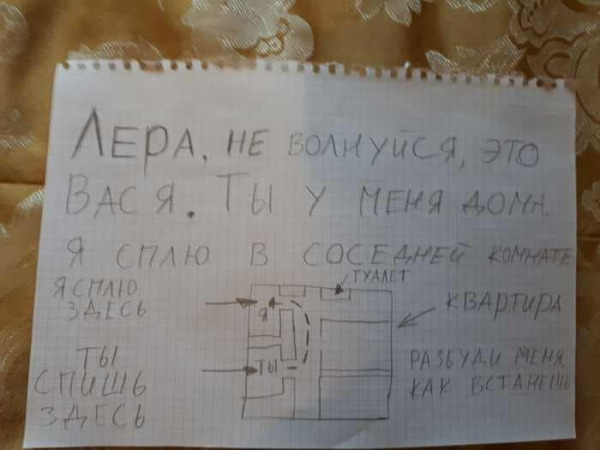 ЛЕРА, НЕ ВОЛНУЙСЯ, ЭТО
ВАСЯ. ТЫ У МЕНЯ ДОМА.
Я СПЛЮ В СОСЕДНЕЙ КОМНАТЕ
ТУАЛЕТ
Я СПЛЮ
ЗДЕСЬ
Я
КВАРТИРА
ТЫ
СПИШЬ
ЗДЕСЬ
ТЫ
РАЗБУДИ МЕНЯ,
КАК ВСТАНЕШЬ